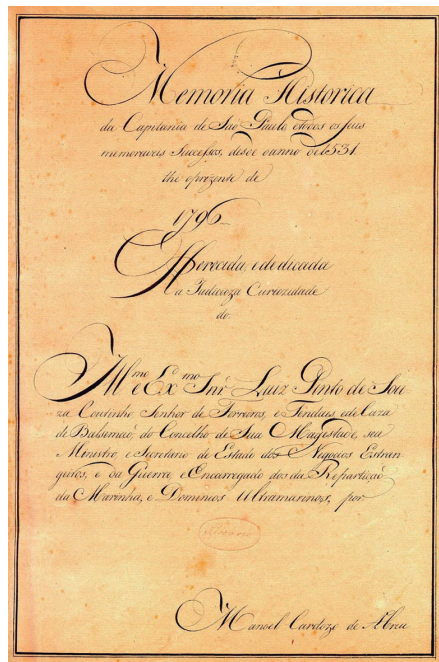 Memoria Historica
da Capitania de São Paulo e todos os seus
memoraveis Sucessos, desde o anno de 1531
thé o prezente de
1796
Offerecida, e dedicada
a Judicioza Curiozidade
do
Ill.mo e Ex.mo Snr. Luiz Pinto de Sou
za Coutinho Senhor de Ferreiros, e Tendaes, e de Caza
de Balsemaõ, do Concelho de Sua Magestade, seu
Ministro, e Secretario de Estado dos Negocios Estran
geiros, e da Guerra, e Encarregado dos da Repartiçaõ
da Marinha, e Dominios Ultramarinos, por
Manoel Cardozo de Abreu